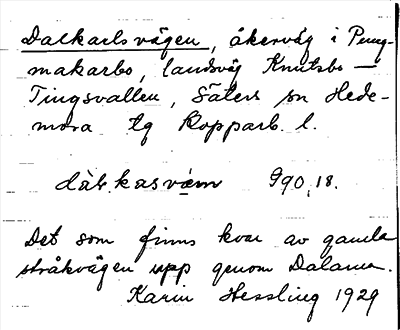 Dalkarlsvägen, åkerväg i Pung-
makarbo, landsväg Knutsbo —
Tingsvallen, Säters sn Hede-
mora tg Kopparb. l.
990,18.
Det som finns kvar av gamla
stråkvägen upp genom Dalarna.
Karin Hessling 1929